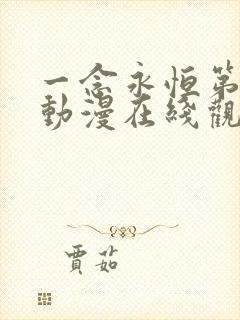 一念永恒第
動漫在綫觀
賈茹